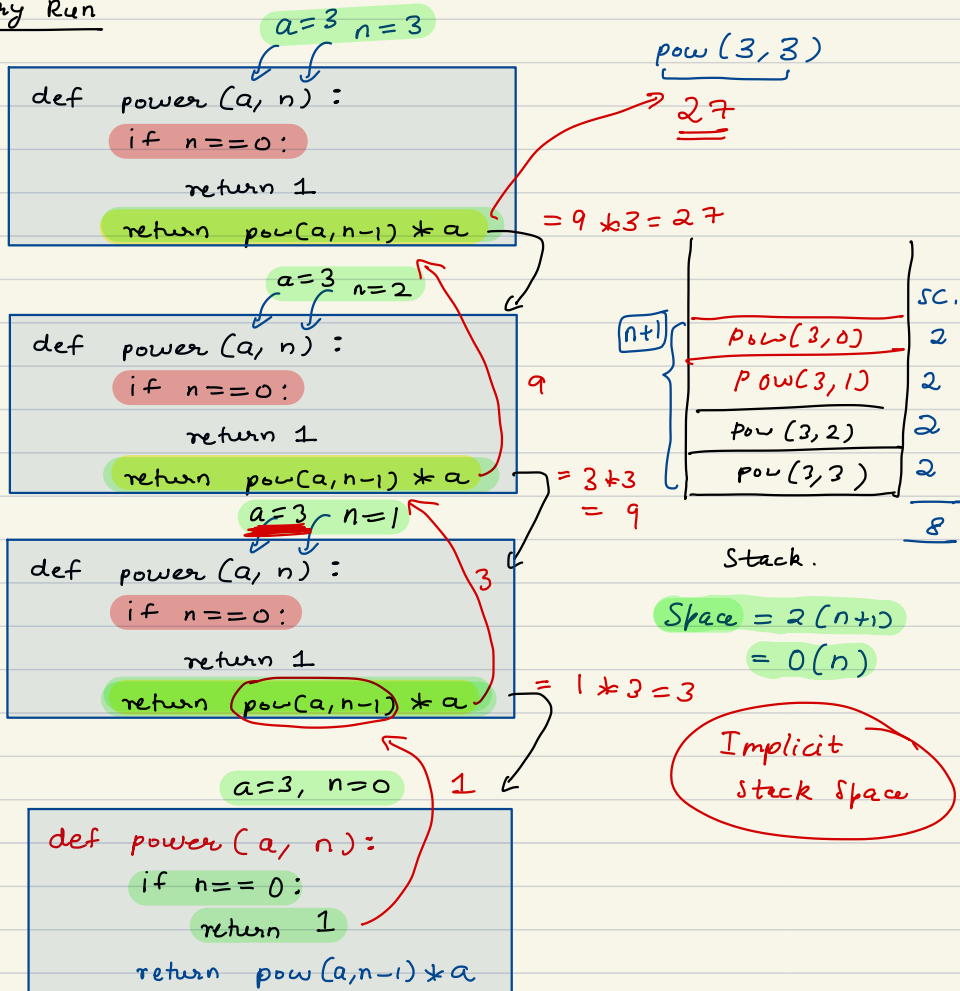 ry Run
a=3 n=3
def power (a, n) :
if n==0:
return 1
return pow(a,n-1) * a
pow (3,3)
27
= 9 *3 = 27
a=3 n=2
def power (a, n) :
if n==0:
return 1
return pow(a,n-1) * a
9
= 3*3
= 9
a=3 n=1
def power (a, n) :
if n==0:
return 1
return pow(a,n-1) * a
3
= 1 * 3 = 3
a=3, n=0
1
def power (a, n):
if n== 0:
return 1
return pow (a,n-1) * a
SC.
n+1
pow(3,0) 2
pow(3,1) 2
pow (3,2) 2
pow (3,3) 2
8
Stack.
Space = 2(n+1)
= O(n)
Implicit
Stack Space